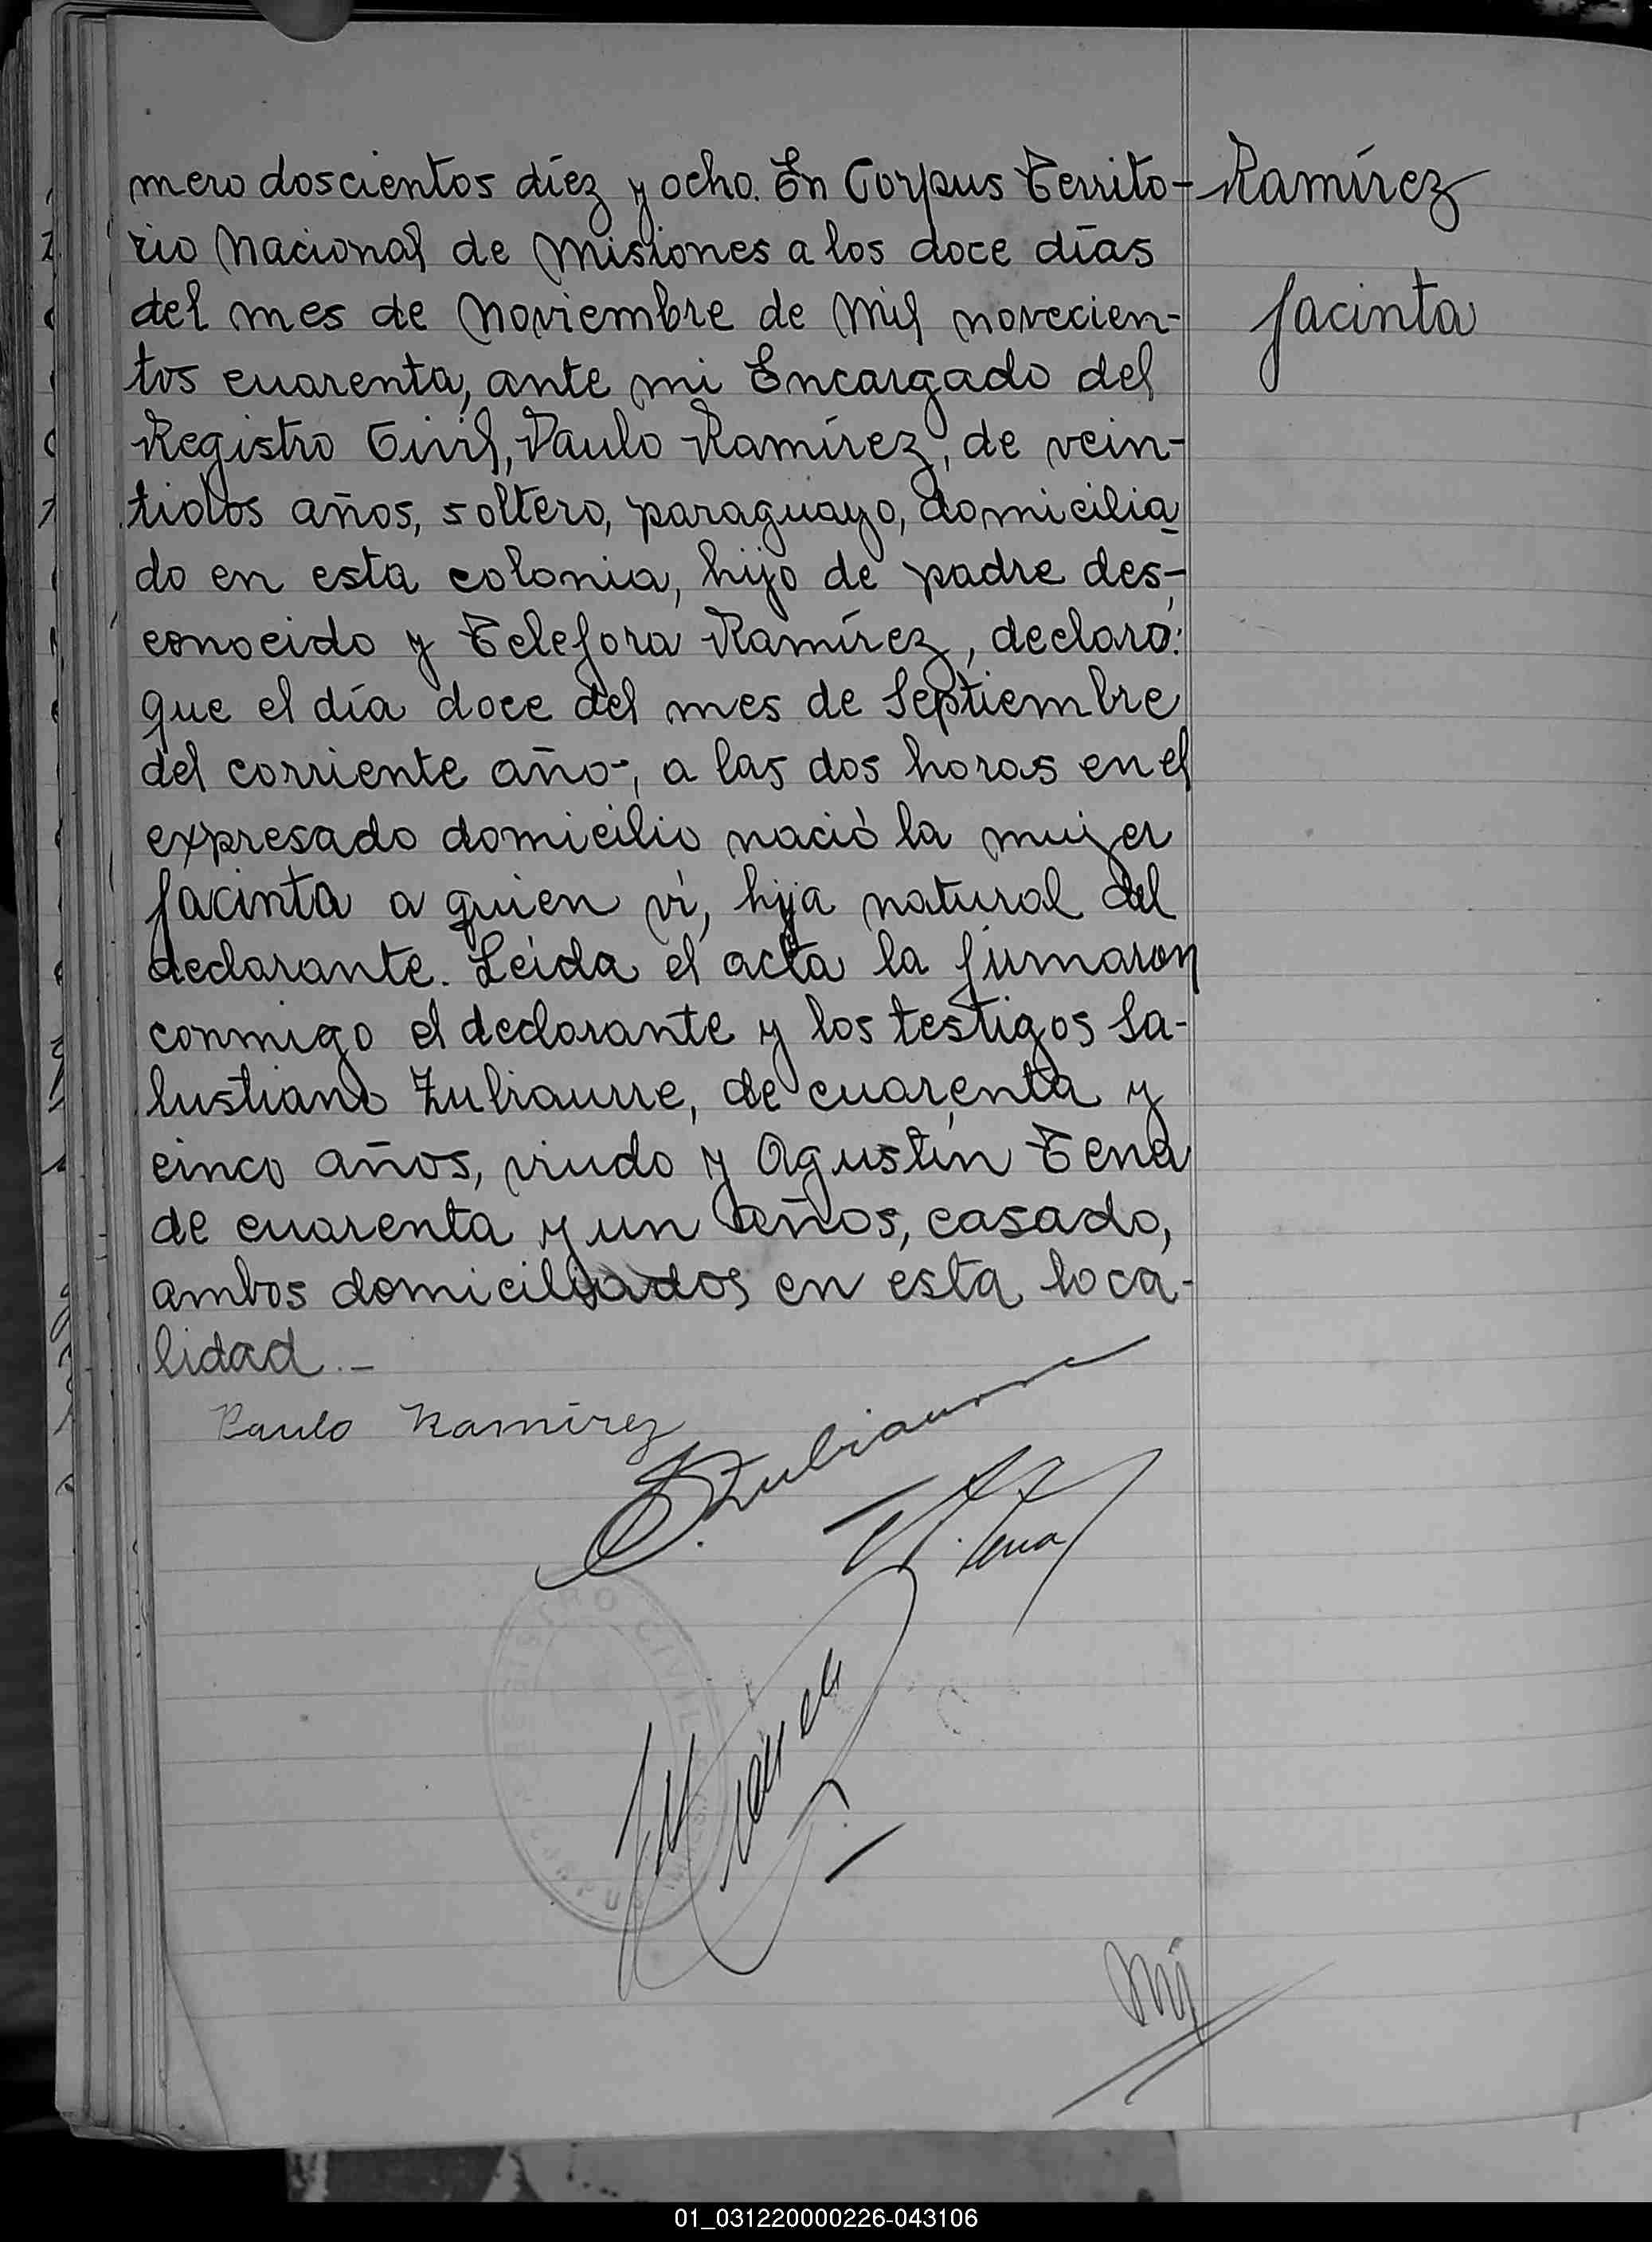 mero doscientos diez y ocho. En Corpus Territo-
Ramírez
rio Nacional de Misiones a los doce días
del mes de Noviembre de Mil novecien-
Jacinta
tos cuarenta, ante mi Encargado del
Registro Civil, Paulo Ramírez, de vein-
tidos años, soltero, paraguayo, domicilia
do en esta colonia, hijo de padre des-
conocido y Telefora Ramírez, declaró:
que el día doce del mes de Septiembre
del corriente año-, a las dos horas en el
expresado domicilio nació la mujer
Jacinta a quien ví, hija natural del
declarante. Leída el acta la firmaron
conmigo el declarante y los testigos Sa-
lustiano Zubiaurre, de cuarenta y
cinco años, viudo y Agustín Tena
de cuarenta y un años, casado,
ambos domiciliados en esta loca-
lidad.-
Paulo Ramírez
S. Zubiaurre
A. Tena
REGISTRO CIVIL
CORPUS
01_031220000226-043106